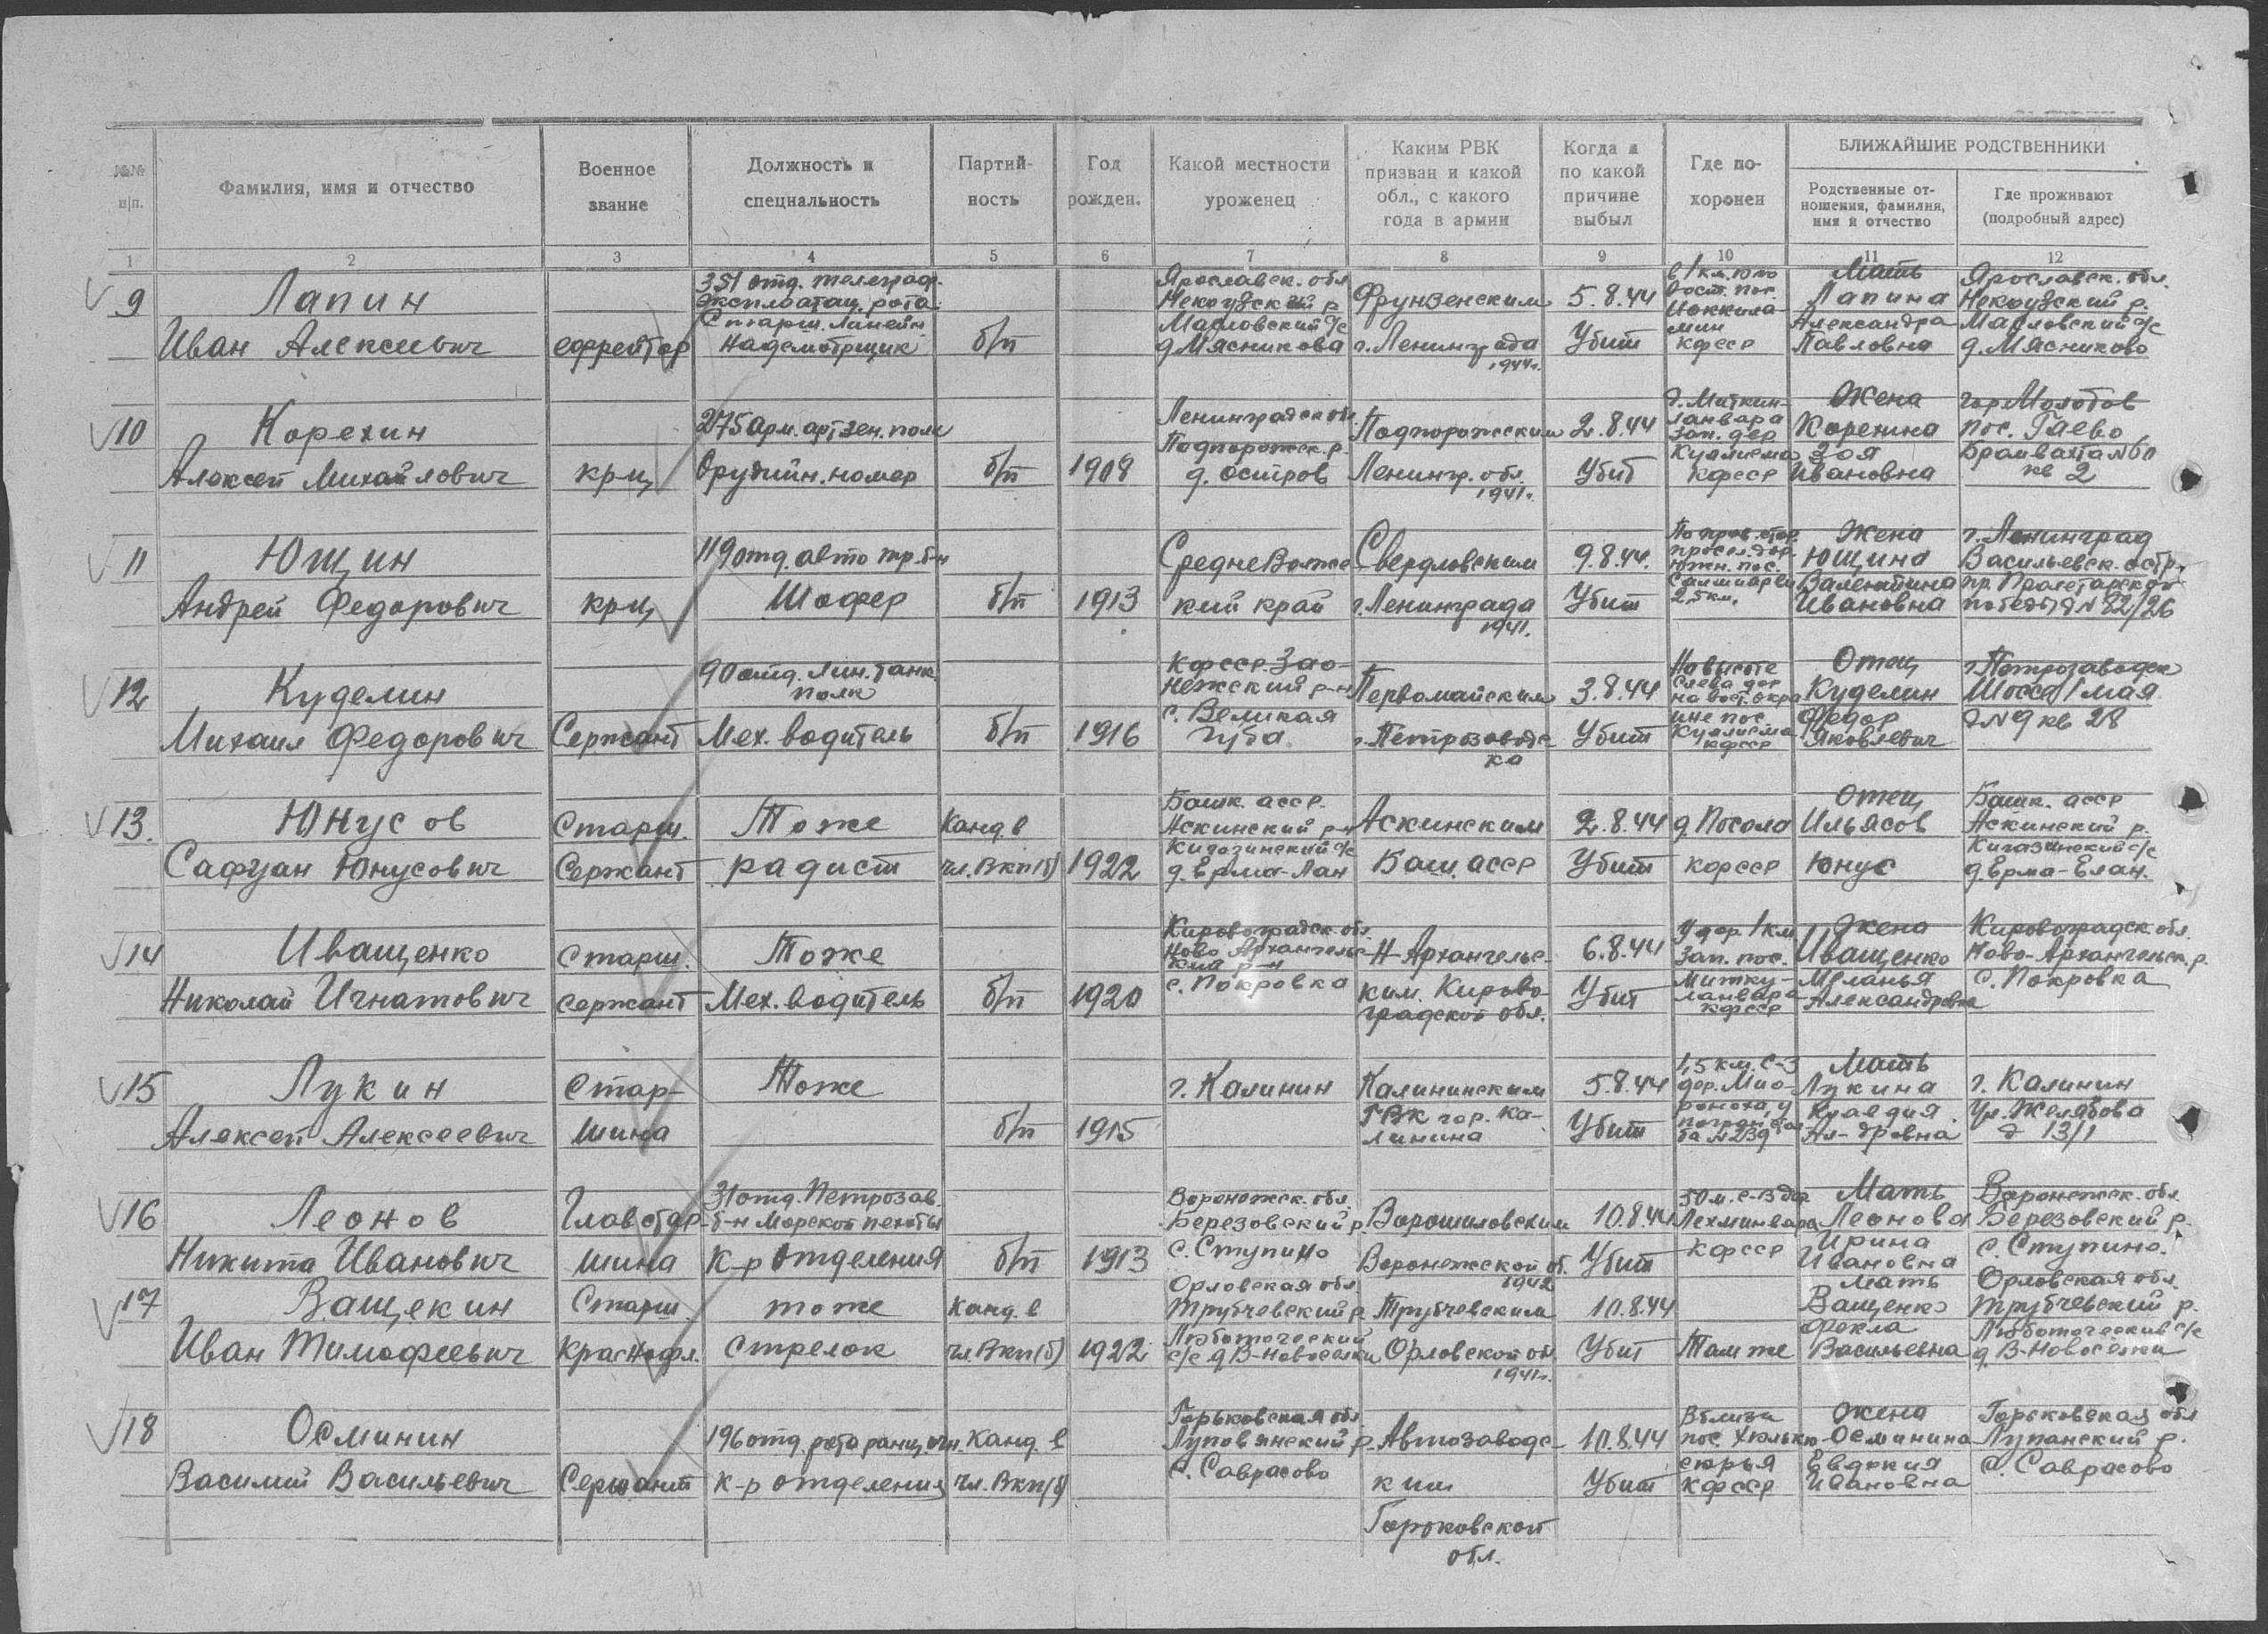 №№ п/п.
Фамилия, имя и отчество
Военное звание
Должность и специальность
Партий-ность
Год рожден.
Какой местности уроженец
Каким РВК призван и какой обл., с какого года в армии
Когда и по какой причине выбыл
Где по-хоронен
БЛИЖАЙШИЕ РОДСТВЕННИКИ
Родственные от-ношения, фамилия, имя и отчество
Где проживают (подробный адрес)
1 2 3 4 5 6 7 8 9 10 11 12
9
Лапин
Иван Алексеевич
ефрейтор
351 отд. телеграф.
эксплоатац. рота
Старш. линейн
надсмотрщик
б/п
Ярославск. обл
Некоузский р
Масловский с/с
д. Мясникова
Фрунзенским
г. Ленинграда
1944г.
5.8.44
Убит
в 1 км. ю по
вост. пос.
кфсср
Мать
Лапина
Александра
Павловна
Ярославск. обл.
Некоузский р.
Масловский с/с
д. Мясниково
10
Корехин
Алексей Михайлович
крц
275 арм. арт зен. полк
Орудийн. номер
б/п
1908
Ленинградск обл.
Подпорожск. р.
д. остров
Подпорожским
Ленингр. обл.
1941г.
2.8.44
Убит
д. Миткин-
ланвара
зап. дер
Куялисма
кфсср
Жена
Корехина
Зоя
Ивановна
гор Молотов
пос. Гаево
№ 60
кв 2
11
Ющин
Андрей Федорович
крц
119 отд. авто тр. б-н
Шофер
б/п
1913
СреднеВолжс
кий край
Свердловским
г. Ленинграда
1941.
9.8.44.
Убит
По прав. стор.
просел. дор.
южн. пос.
2,5 км.
Жена
Ющина
Валентина
Ивановна
г. Ленинград
Васильевск. остр.
пр. Пролетарской
победы д № 82/26
12
Куделин
Михаил Федорович
Сержант
90 отд. лин. танк.
полк
Мех. водитель
б/п
1916
кфсср. Зао-
нежский р-н
с. Великая
губа
Первомайским
г. Петрозаводс
ка
3.8.44
Убит
На высоте
слева дор
на вост. окра
ине пос.
Куялисма
кфсср
Отец
Куделин
Федор
Яковлевич
г. Петрозаводск
Шоссе 1 мая
д № 9 кв 28
13.
Юнусов
Сафуан Юнусович
Старш.
Сержант
Тоже
радист
Канд. в
чл. Вкп(б)
1922
Башк. асср.
Аскинский р-н
с/с
д. Ерма-Лан
Аскинским
Баш. асср
2.8.44
Убит
д Посола
кфсср
Отец
Ильясов
Юнус
Башк. асср
Аскинский р.
Кигазинский с/с
д. Ерма-Елан.
14
Иващенко
Николай Игнатович
Старш.
сержант
Тоже
Мех. водитель
б/п
1920
Кировоградск. обл.
Ново Архангельс
кий р-н
с. Покровка
Н-Архангельс-
ким. Кирово-
градской обл.
6.8.44
Убит
У дор. 1 км
зап. пос.
Митку-
ланвара
кфсср
Жена
Иващенко
Меланья
Александровна
Кировоградск. обл.
Ново-Архангельск. р.
с. Покровка
15
Лукин
Алексей Алексеевич
Стар-
шина
Тоже
б/п
1915
г. Калинин
Калининским
ГВК гор. Ка-
линина
5.8.44
Убит
1,5 км. С-З
№ 239
Мать
Лукина
Клавдия
Ал-дровна
г. Калинин
Ул. Желябова
д 13/1
16
Леонов
Никита Иванович
Глав стар-
шина
31 отд. Петрозав.
б-н Морской пехоты
К-р отделения
б/п
1913
Воронежск. обл.
Березовский р.
с. Ступино
Ворошиловским
Воронежской об.
1942
10.8.44
Убит
50 м. с-в дер
Лехминвара
кфсср
Мать
Леонова
Ирина
Ивановна
Воронежск. обл.
Березовский р.
с. Ступино.
17
Ващекин
Иван Тимофеевич
Старш.
Краснофл.
тоже
Стрелок
Канд. в
чл. Вкп(б)
1922
Орловская обл
Трубчевский р.
с/с д В-Новоселки
Трубчевским
Орловской об.
1941г.
10.8.44
Убит
Там же
Мать
Ващенко
Фекла
Васильевна
Орловская обл.
Трубчевский р.
с/с
д. В-Новоселки
18
Осминин
Василий Васильевич
Сержант
196 отд. рота ранц огн.
К-р отделения
Канд. в
чл. Вкп(б)
Горьковская обл.
р.
с. Саврасово
Автозаводс-
ким
Горьковской
обл.
10.8.44
Убит
Вблизи
пос. Хюлькю-
сюрья
кфсср
Жена
Осминина
Евдокия
Ивановна
Горьковская обл
Лупанский р.
с. Саврасово